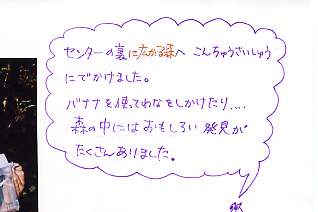 センターの裏に広がる森へ こんちゅうさいしゅう
にでかけました。
バナナを使ってわなをしかけたり....
森の中にはおもしろい発見が
たくさんありました。